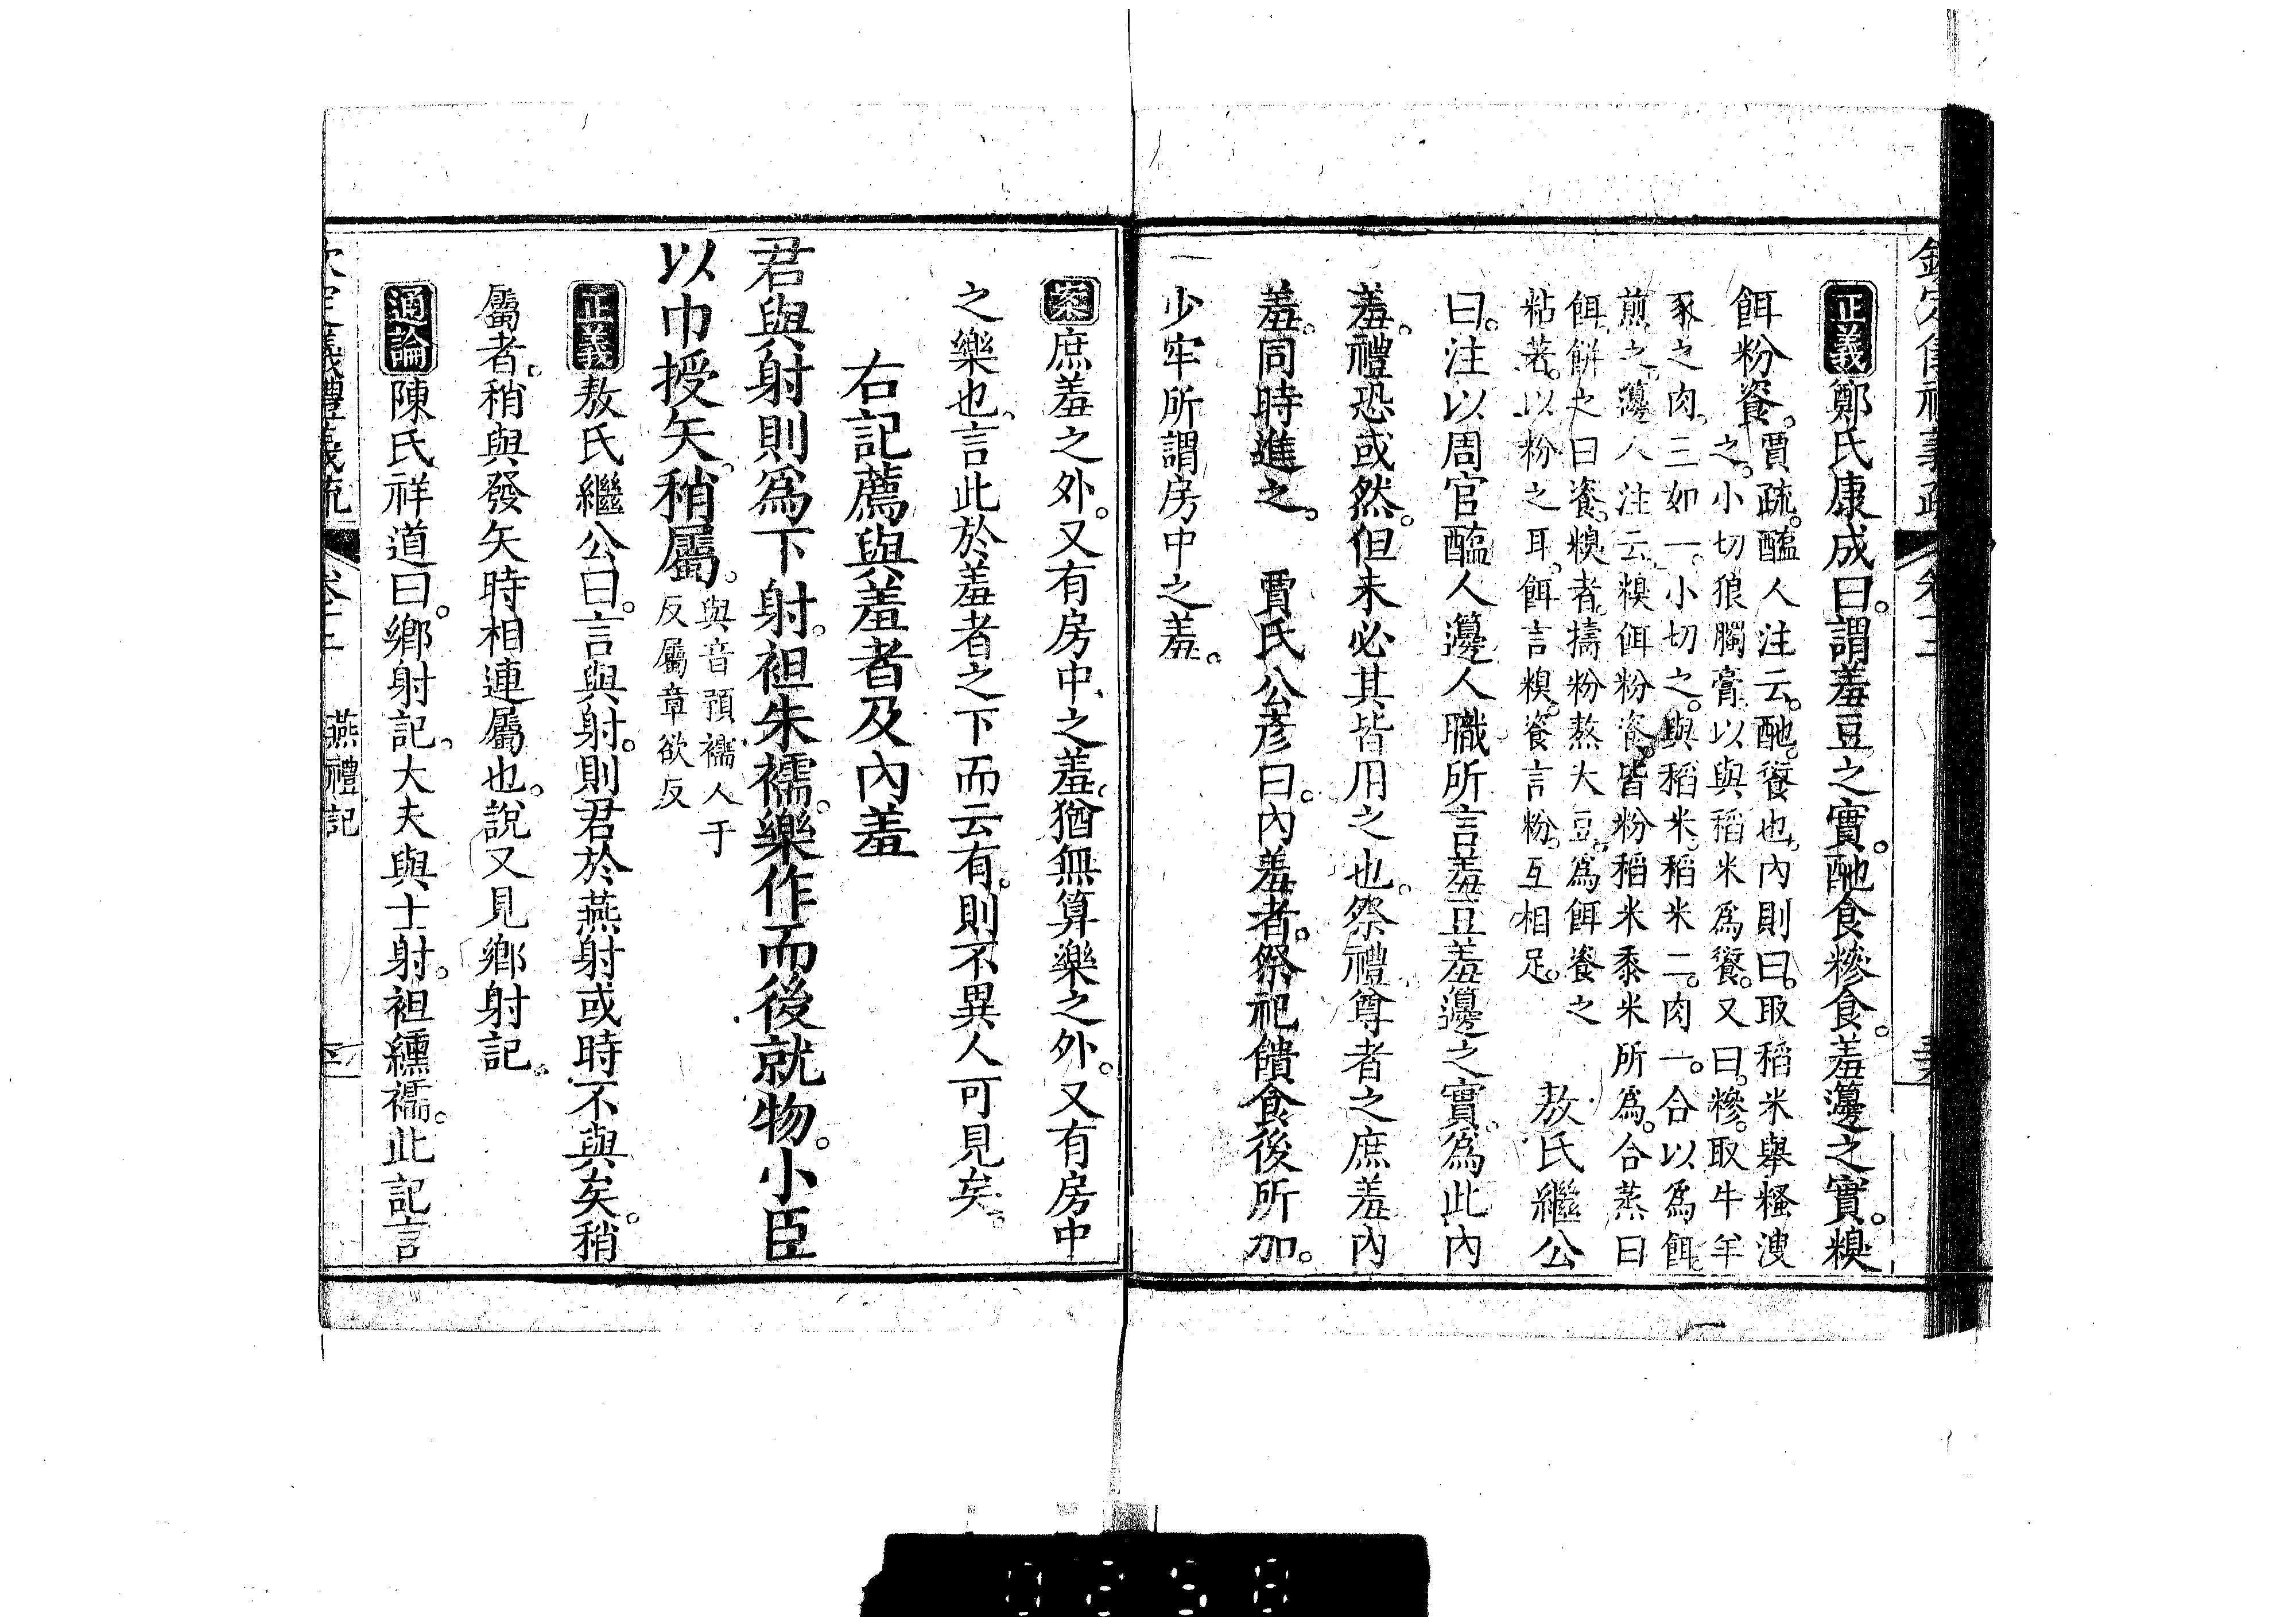 正義鄭氏康成曰。謂羞豆之實。酏食糝食。羞籩之實。糗
餌粉餈。賈疏。醢人注云。酏。餰也。內則曰。取稻米舉糔溲
之。小切狼臅膏。以與稻米爲餰。又曰。糝。取牛羊
豕之肉。三如一。小切之。與稻米。稻米二。肉一。合以爲餌。
煎之。籩人注云。糗餌粉餈。皆粉稻米黍米所爲。合蒸曰
餌。餅之曰餈。糗者。擣粉熬大豆。爲餌餈之
粘著。以粉之耳。餌言糗。餈言粉。互相足。 敖氏繼公
曰。注以周官醢人籩人職所言羞豆羞籩之實。爲此內
羞。禮恐或然。但未必其皆用之也。祭禮尊者之庶羞內
羞。同時進之。 賈氏公彥曰。內羞者。祭祀饋食後所加。
少牢所謂房中之羞。
案庶羞之外。又有房中之羞。猶無算樂之外。又有房中
之樂也。言此於羞者之下而云有。則不異人可見矣。
右記薦與羞者及內羞
君與射則爲下射。袒朱襦。樂作而後就物。小臣
以巾授矢。稍屬。與音預襦人于
反屬章欲反
正義敖氏繼公曰。言與射。則君於燕射或時不與矣。稍
屬者。稍與發矢時相連屬也。說又見鄉射記。
通論陳氏祥道曰。鄉射記。大夫與士射。袒纁襦。此記言
燕禮記